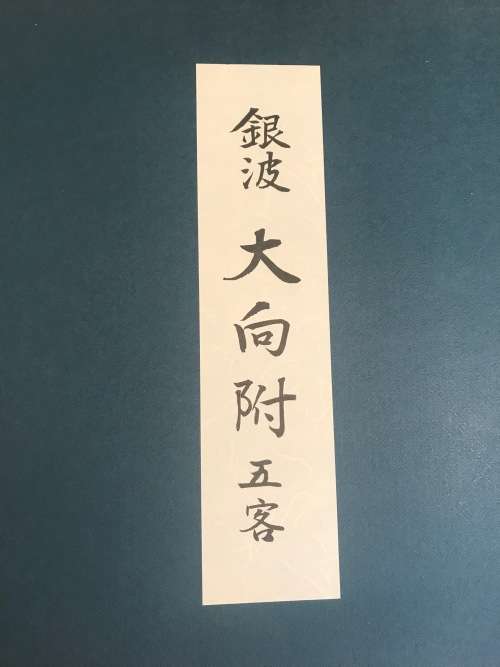 銀波 大向附 五客